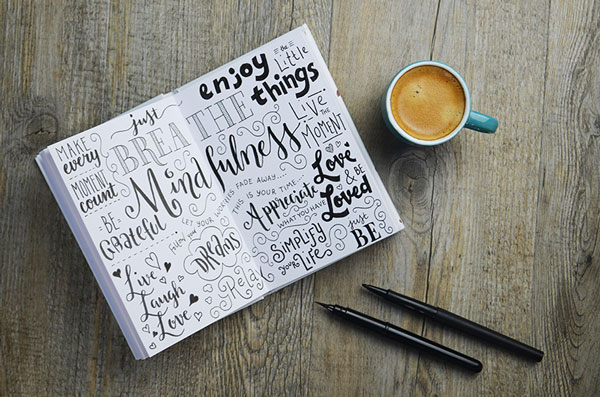 MAKE
every
MOMENT
count
just
BREATHE
BE
Grateful
Mindfulness
LET YOUR WORRIES FADE AWAY....
THIS IS YOUR TIME
follow your
DREAMS
Live
Laugh
Love
Relax
enjoy
the
Little
things
LIVE
THE
MOMENT
Love
& BE
Loved
Appreciate
WHAT YOU HAVE
SIMPLIFY
your
LIFE
just
BE